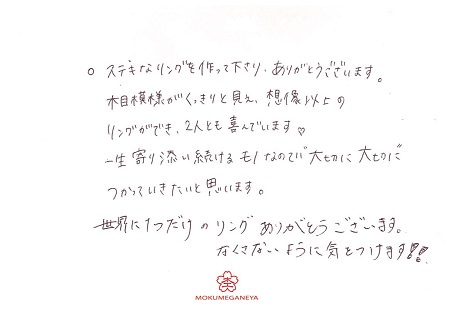 ○ ステキなリングを作って下さり、ありがとうございます。
木目模様がくっきりと見え、想像以上の
リングができ、2人とも喜んでいます♡
一生寄り添い続けるモノなので大切に大切に
つかっていきたいと思います。
世界に1つだけのリングありがとうございます。
なくさないように気をつけます!!
MOKUMEGANEYA